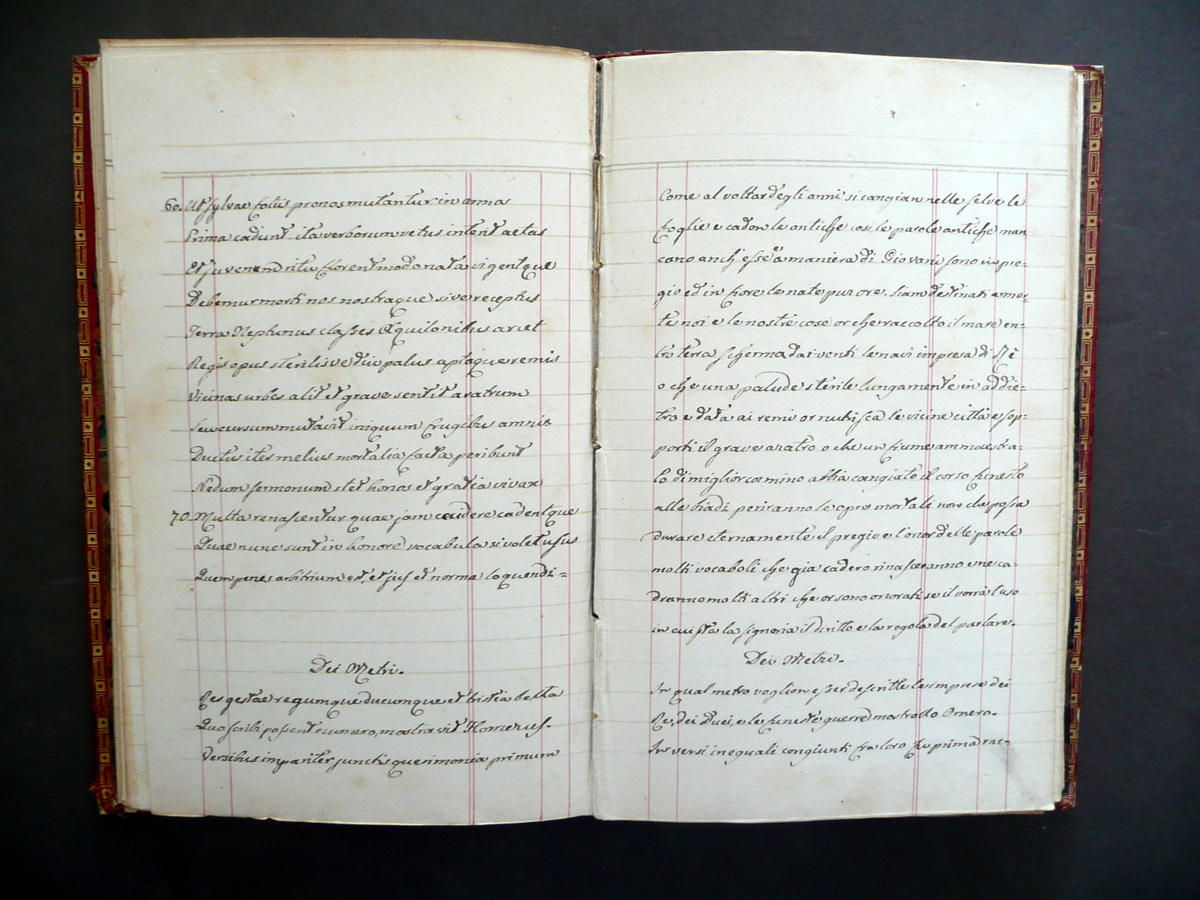 60. Ut sylvae foliis pronos mutantur in annos
Prima cadunt ita verborum vetus interit aetas
Et juvenum ritu florent modo nata vigentque
Debemur morti nos nostraque sive receptus
Terra Nephenus classes Aquilonibus arcet
Regis opus sterilisve diu palus aptaque remis
Vicinas urbes alit et grave sentit aratrum
Seu cursum mutavit iniquum frugibus amnis
Doctus iter melius mortalia facta peribunt
Nedum sermonum stet honos et gratia vivax
70. Multa renascentur quae jam cecidere cadentque
Quae nunc sunt in honore vocabula si volet usus
Quem penes arbitrium est, et jus et norma loquendi=
Dei Metri.
Res gestae regumque ducumque et tristia bella
Quo scribi possent numero, mostravit Homerus.
Versibus impariter junctis querimonia primum
Come al voltar degli anni si cangian nelle selve le
foglie e cadon le antiche così le parole antiche man
cano anch'esse a maniera di Giovani sono in pre-
gio ed in fiore le nate pur ore. Siam destinati a mor-
te noi e le nostre cose or che raccolto il mare en-
tro terra scherma dai venti le navi impresa di Rè
o che una palude sterile lungamente in addie-
tro e data ai remi or nutrisca le vicine citta e sop-
porti il grave aratro o che un fiume ammaestra-
to di miglior camino abbia cangiato il corso funesto
alle biadi periranno le opre mortali non che possa
durare eternamente il pregio e l'onor delle parole
molti vocaboli che gia cadero rinasceranno e ne ca-
dranno molti altri che or sono onorati se il vorrà l'uso
in cui sta la signoria il diritto e la regola del parlare.
Dei Metri.
In qual metro voglion esser descritte le imprese dei
Re, dei Duci, e le funeste guerre mostrollo Omero.
In versi ineguali congiunti fra loro fu prima rac-